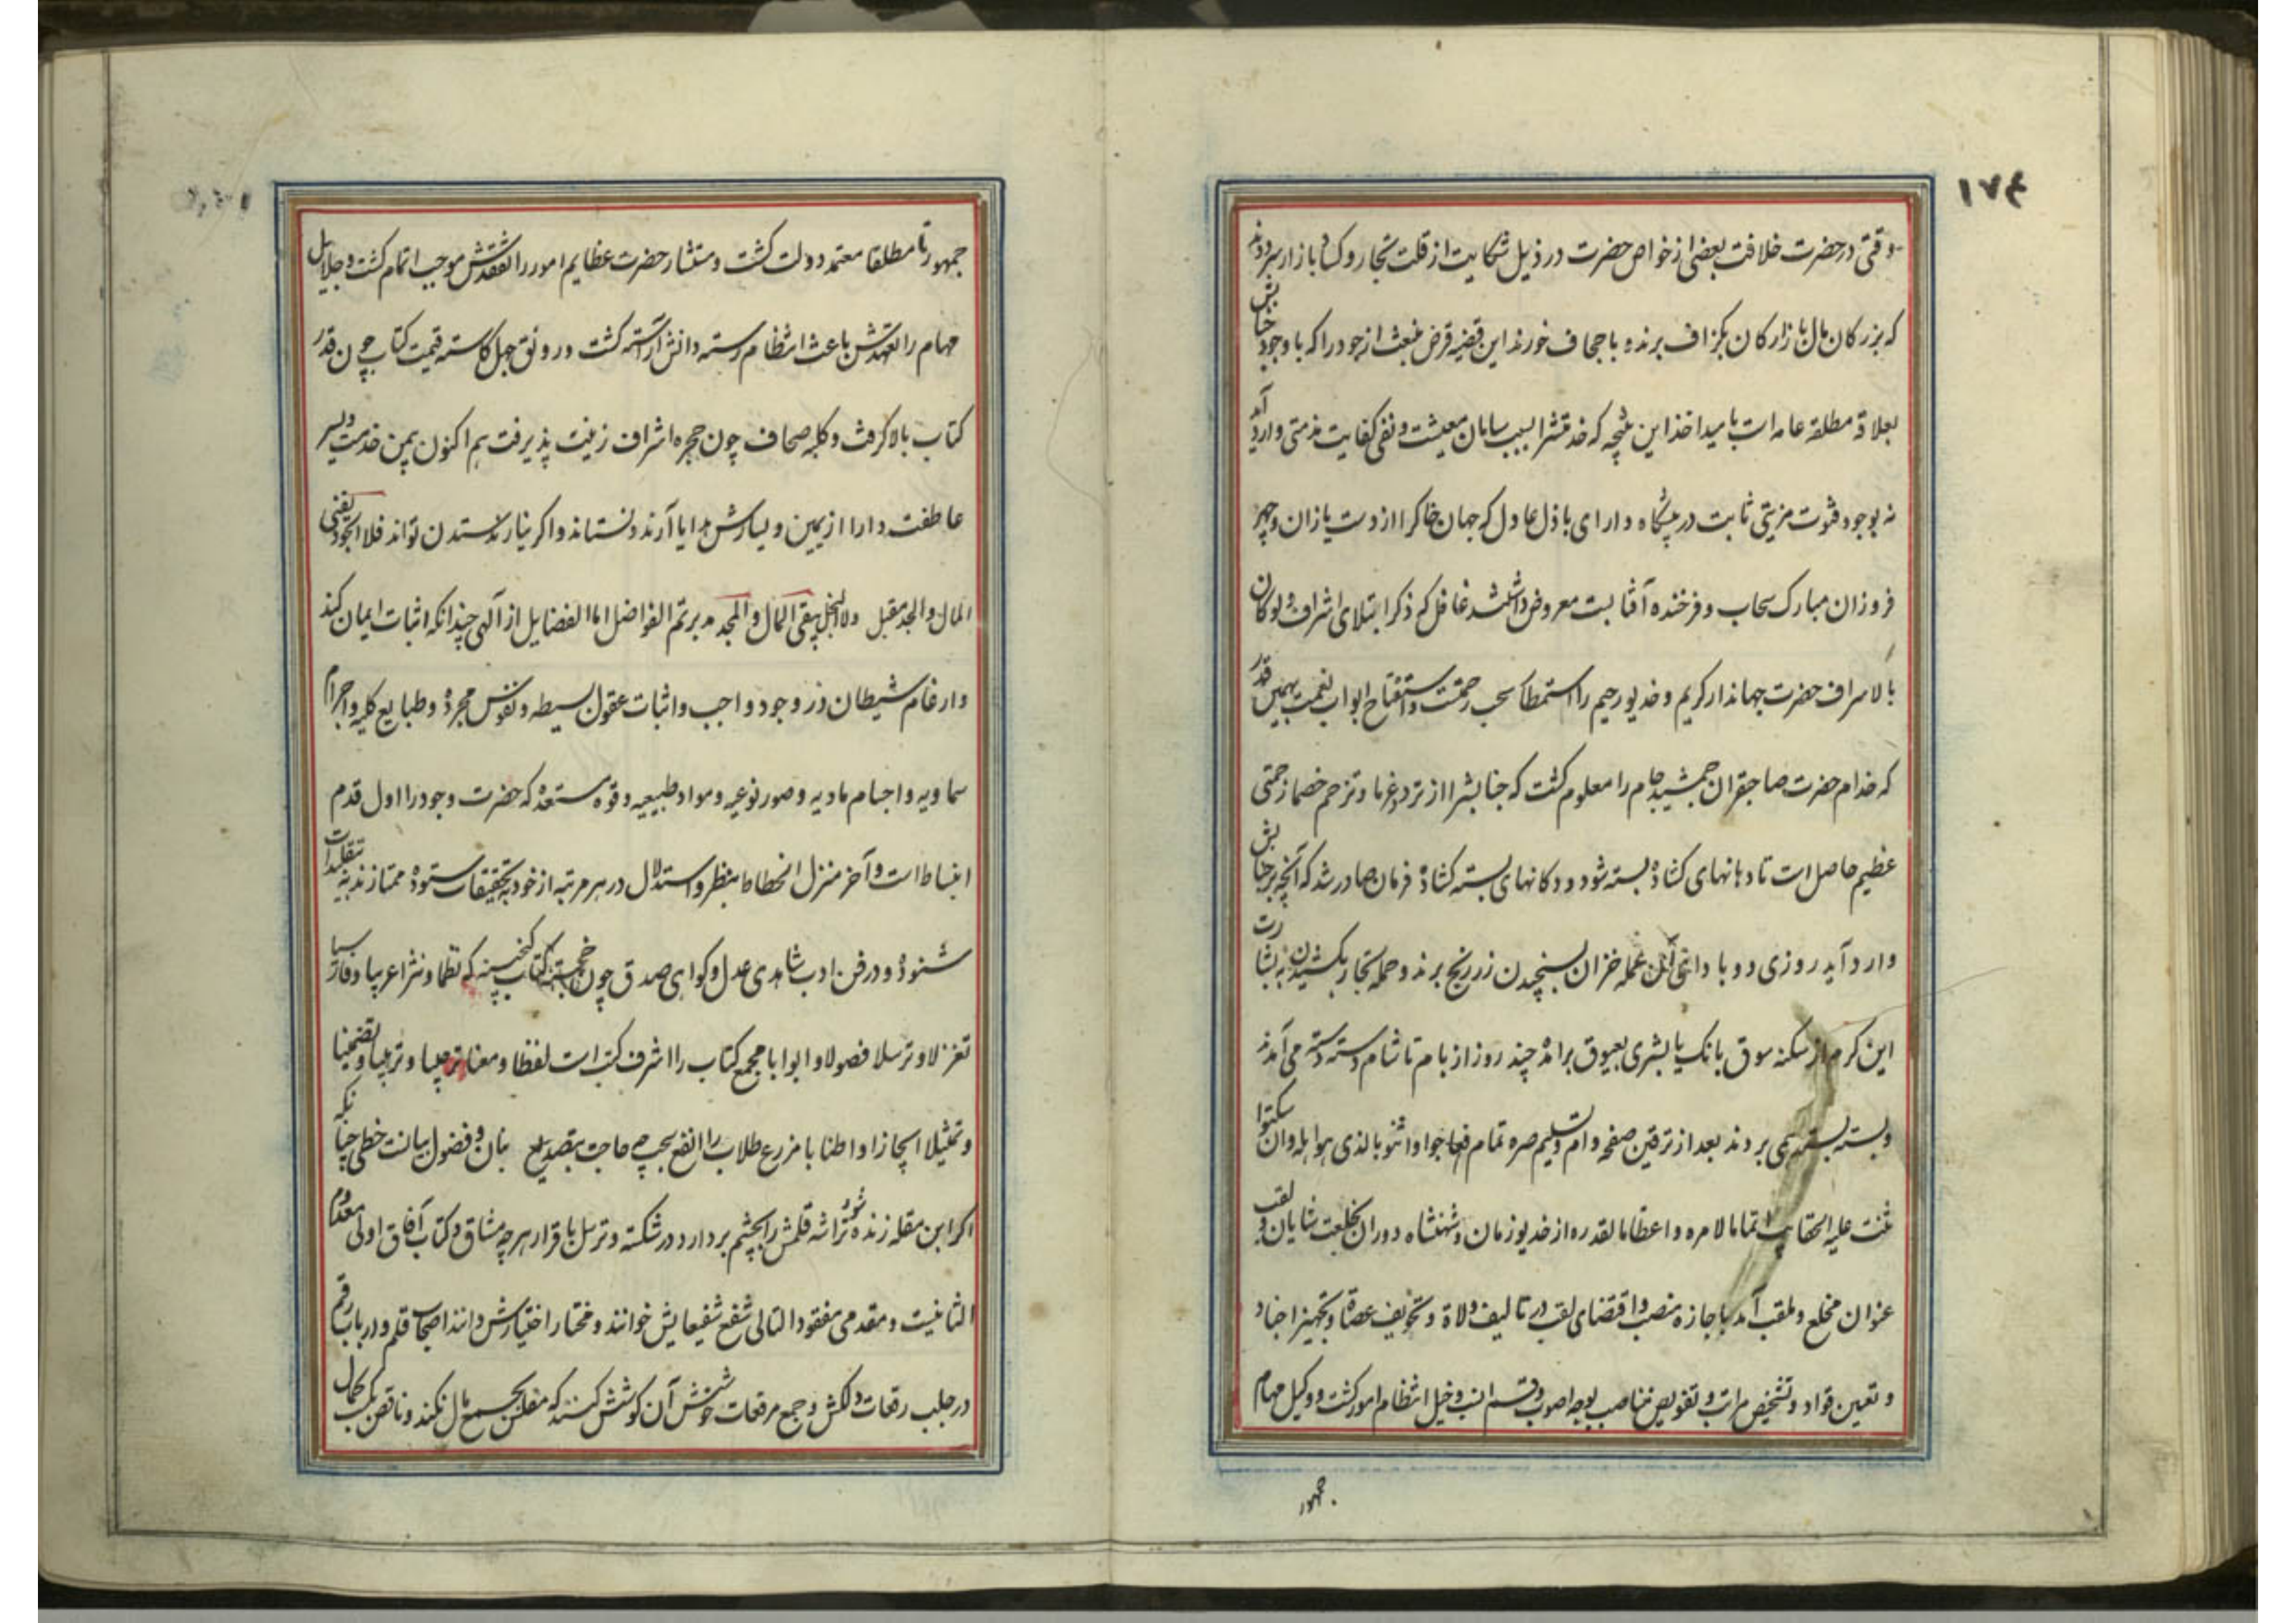 ۱۷۴
وقتی در حضرت خلافت بعضی از خواص حضرت در ذیل شکایت از قلت تجار و کساد بازار سپردند
که بزرکان مال بازارکان بکزاف برند و باجحاف خورند این قضیه قرض منبعث از جود را که با وجود جنابش
بعلاقه مطلقه عامه است بامید اخذ این نتیجه که خدمتش را بسبب سامان معیشت و نفی کفایت مذمتی وارد آید
نه بوجود فتوت مزیتی ثابت در پیشکاه دارای باذل عادل که جهان خاک را از دست یازان و چهر
فروزان مبارک سحاب و فرخنده آفتابست معروض داشتند غافل که ذکر ابتلای اشراف ولو کان
بالاسراف حضرت جهاندار کریم و خدیو رحیم را استمطار سحب رحمت و استفتاح ابواب نعمت بهمین قدر
که خدام حضرت صاحبقران جمشید جام را معلوم کشت که جنابش را از تردد غرما و تزاحم خصما زحمتی
عظیم حاصل است تا دهانهای کشاده بسته شود و دکانهای بسته کشاده فرمان صادر شد که آنچه بر جنابش
وارد آید روزی دو با دانی عمله خزان بسنجیدن زر رنج برند و حمله تجار بکشیدن به بشارت
این کرم از سکنه سوق بانک یا بشری بعیوق برامد چند روز از بام تا شام دسته دسته می آمدند
و بسته بسته همی بردند بعد از ترقین صفحه وام و تسلیم صره تمام فعاجوا واثنوا بالذی هو اهله وان سکتوا
ثنت علیه الحقایب اتماما لامره و اعظاما لقدره از خدیو زمان و شهنشاه دوران بخلعت شایان و لقب
عنوان مخلع و ملقب آمد باجازه منصب و اقتضای لقب در تالیف ولاة و تخویف عصاة و تجهیز اجناد
و تعیین قواد و تشخیص مراتب و تفویض مناصب بوجه اصوب و قسم انسب دخیل انتظام امور کشت و وکیل مهام
جمهور
جمهور تا مطلقا معتمد دولت کشت و مستشار حضرت عظایم امور را تفقدش موجب اتمام کشت و جلایل
مهام را تعهدش باعث انتظام رسته دانش آراسته کشت و رونق جهل کاسته قیمت کتاب چون قدر
کتاب بالا کرفت و کلبه صحاف چون حجره اشراف زینت پذیرفت هم اکنون بیمن خدمت و یسر
عاطفت دارا از یمین و یسارش هدایا آرند و نستاند و اکر نیارند ستدن تواند فلا الجود یفنی
المال والجد مقبل ولا البخل یبقی المال والجد مدبر تم الفواضل اما الفضایل از آلهی چندانکه اثبات ایمان کند
وارغام شیطان در وجود واجب و اثبات عقول بسیطه و نفوس مجرده و طبایع کلیه و اجرام
سماویه و اجسام مادیه و صور نوعیه و مواد طبیعیه و قوه مستعده که حضرت وجود را اول قدم
انبساط است و آخر منزل انحطاط بنظر و استدلال در هر مرتبه از خود بتحقیقات ستوده ممتازند نه بتقلیدات
شنوده و در فن ادب شاهدی عدل و کواهی صدق چون خجسته کتاب کنجینه که نظما و نثرا عربیا و فارسیا
تغزلا و ترسلا فصولا و ابوابا مجمع کتاب را اشرف کتب است لفظا و معنا ترجیبا و ترتیبا و تضمینا
و تمثیلا ایجازا و اطنابا مزرع طلاب را انفع سحب چه حاجت بتصدیع بنان و فضول بیانست خطی چنانکه
اکر ابن مقله زنده شود تراشه قلمش را بچشم بردارد در شکسته و ترسل باقرار هرچه مشاق و کتاب آفاق اولی معدوم
الثانیست و مقدمی مفقود التالی شفع شفیعایش خوانند و مختار اختیارش دانند اصحاب قلم و ارباب رقم
در جلب رقعات دلکش و جمع مرقعات خوشش آن کوشش کنند که مفلس بجمع مال نکند و ناقص بکسب کمال